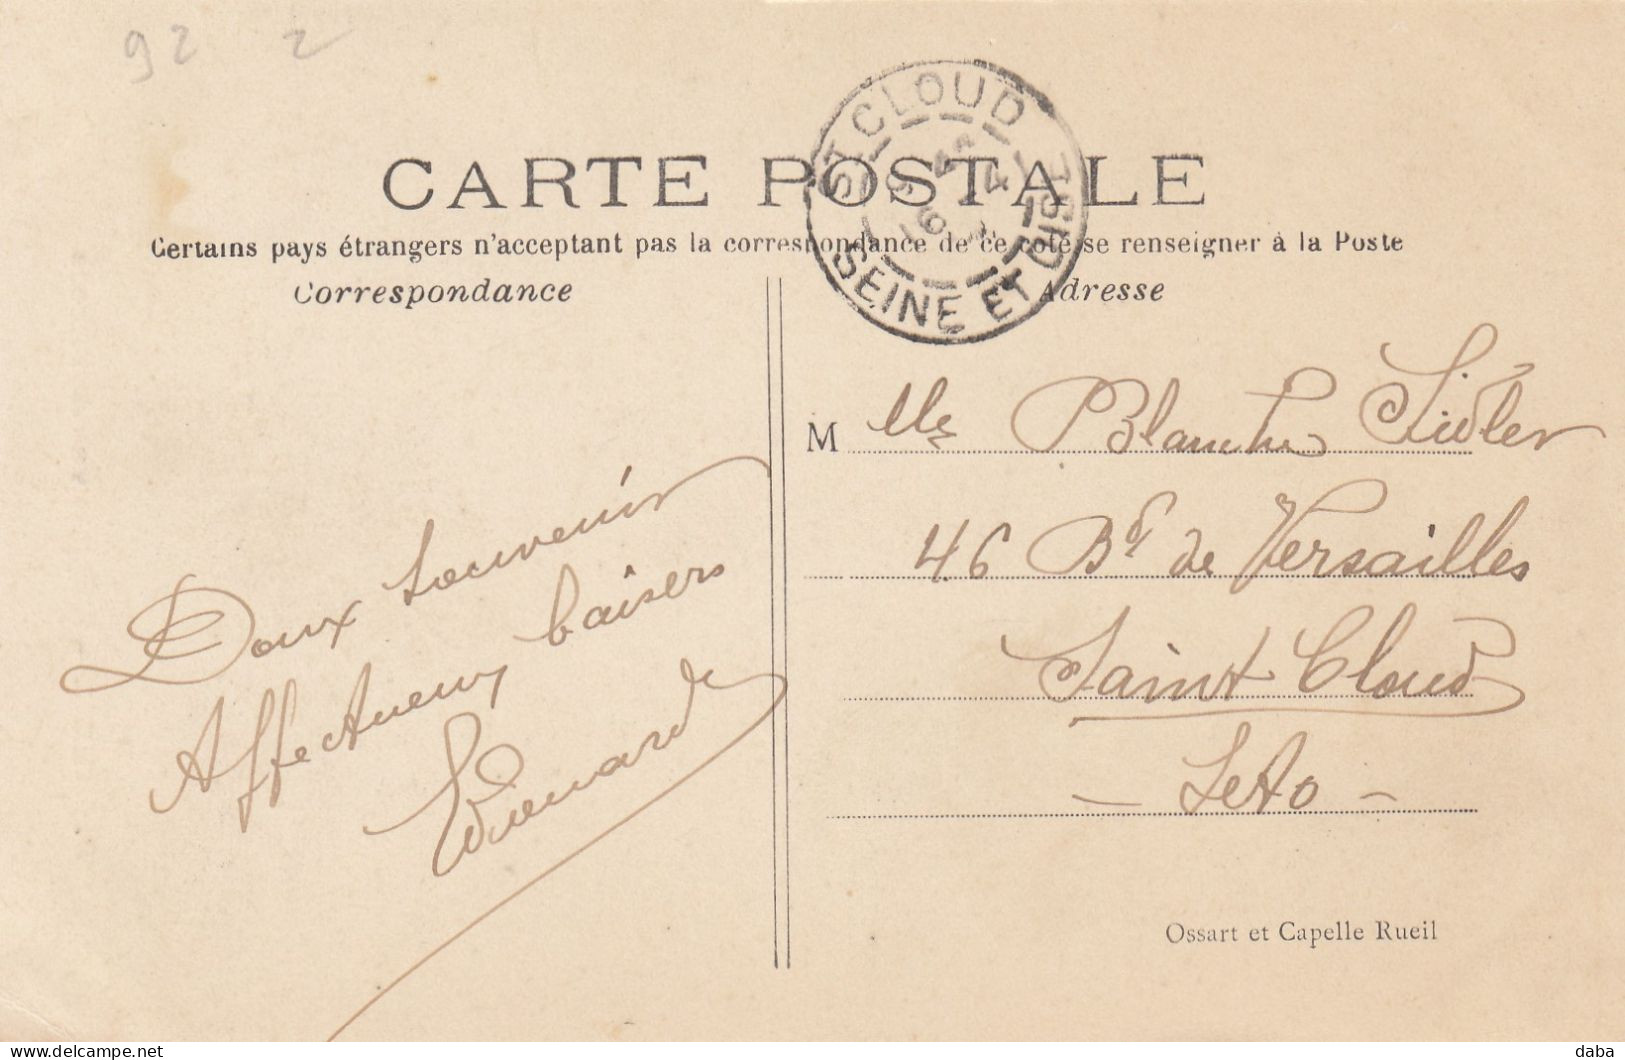 92 2
CARTE POSTALE
Certains pays étrangers n'acceptant pas la correspondance de ce coté se renseigner à la Poste
Correspondance
Doux souvenir
Affectueux baisers
Edouard
ST CLOUD
SEINE ET OISE
Adresse
M lle Blanche Sidler
46 Bd de Versailles
Saint Cloud
- SetO -
Ossart et Capelle Rueil
delcampe.net
daba